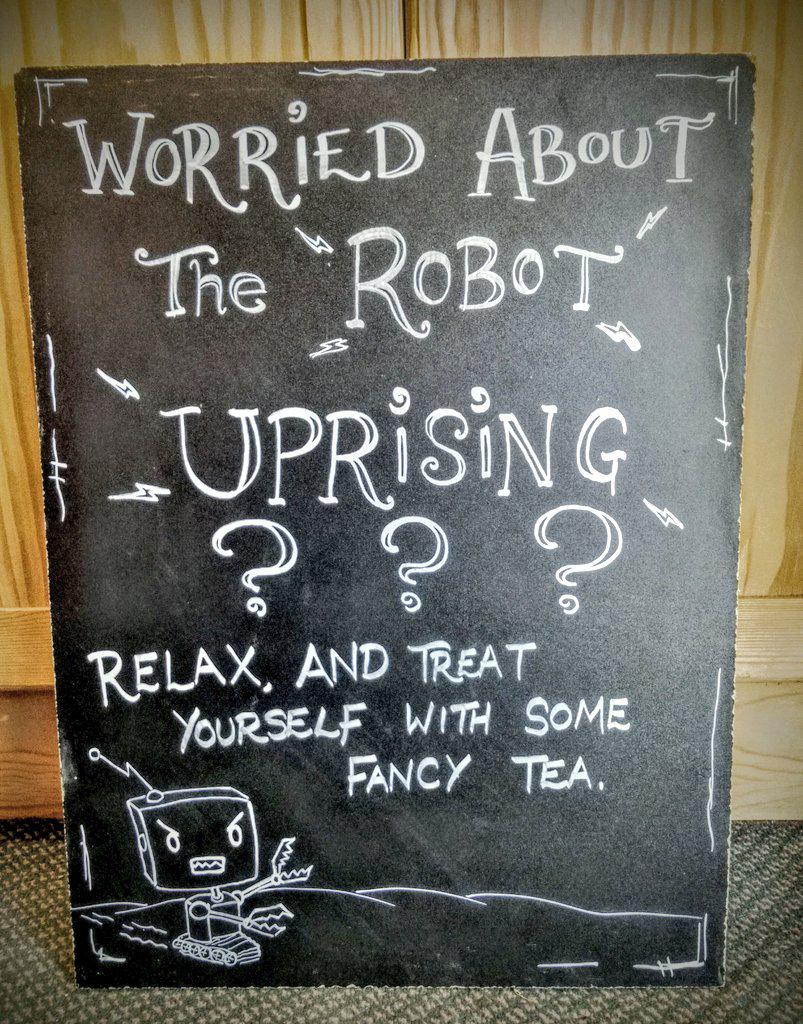 WORRIED ABOUT
THE ROBOT
UPRISING
? ? ?
RELAX, AND TREAT
YOURSELF WITH SOME
FANCY TEA.